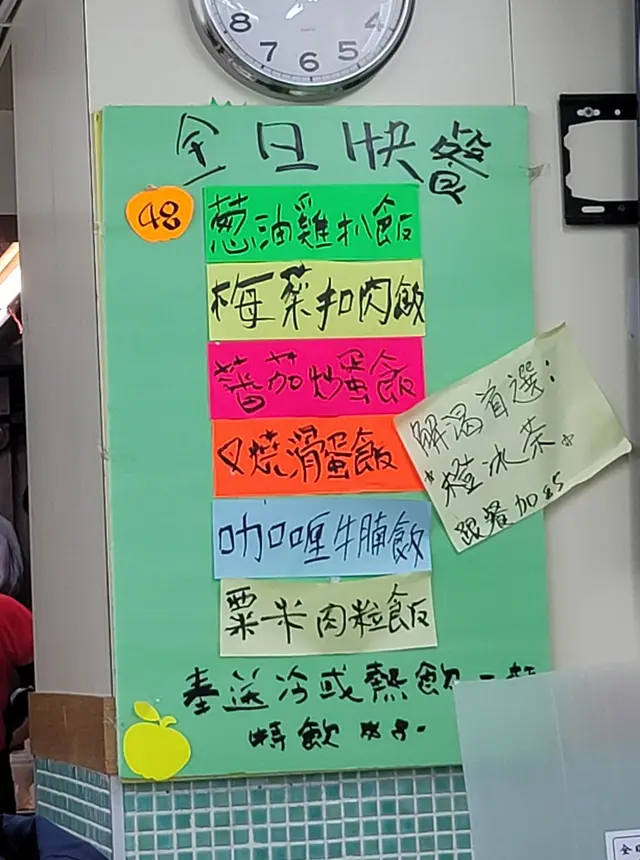 8
7
6
5
4
全日快餐
48
葱油雞扒飯
梅菜扣肉飯
蕃茄炒蛋飯
叉燒滑蛋飯
咖喱牛腩飯
粟米肉粒飯
解渴首選:
橙冰茶
跟餐加$5
奉送冷或熱飲一
特飲